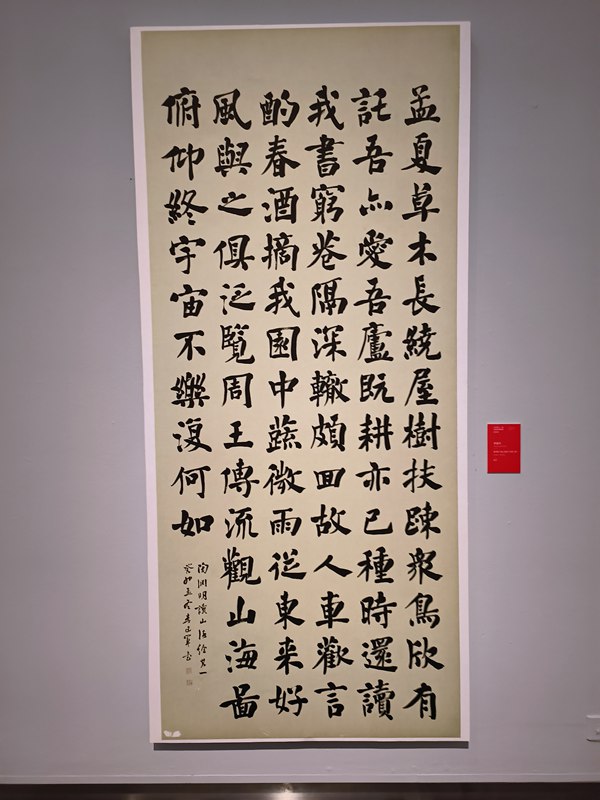 孟夏草木長繞屋樹扶踈衆鳥欣有
託吾亦愛吾廬既耕亦已種時還讀
我書窮巷隔深轍頗回故人車歡言
酌春酒摘我園中蔬微雨從東来好
風與之俱泛覽周王傳流觀山海啚
俯仰終宇宙不樂復何如
陶渊明讀山海經其一
癸卯